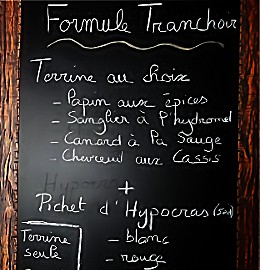 Formule Tranchoir
Terrine au choix
- Papin aux épices
- Sanglier à l'hydromel
- Canard à la Sauge
- Chevreuil aux Cassis
+
Pichet d'Hypocras
- blanc
- rouge
Terrine
seule